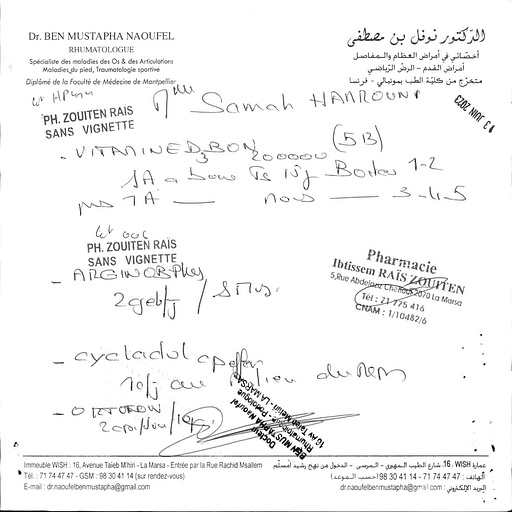 Dr. BEN MUSTAPHA NAOUFEL
RHUMATOLOGUE
Spécialiste des maladies des Os & des Articulations
Maladies du pied, Traumatologie sportive
Diplômé de la Faculté de Médecine de Montpellier
الدكتور نوفل بن مصطفى
أخصائي في أمراض العظام والمفاصل
أمراض القدم - الرض الرياضي
متخرج من كلية الطب بمونبالي - فرنسا
13 JUIN 2023
Mlle Samah HARROUNI
PH. ZOUITEN RAIS
SANS VIGNETTE
- VITAMINE D3 BON 200000 (5B)
1A a boire
1-2
1A — — 3-4-5
PH. ZOUITEN RAÏS
SANS VIGNETTE
- ARGINOPhos
2gel/j / 5
Pharmacie
Ibtissem RAÏS ZOUITEN
5,Rue Abdelaziz 2070 La Marsa
Tél : 71 775 416
CNAM : 1/10482/6
- cycladol
10/j au milieu du repas
Docteur
BEN MUSTAPHA Naoufel
Rhumatologue - Podologue
16 Av Taieb Mehiri - LA MARSA
Immeuble WISH : 16, Avenue Taieb M'hiri - La Marsa - Entrée par la Rue Rachid Msallem
Tél. : 71 74 47 47 - GSM : 98 30 41 14 (sur rendez-vous)
E-mail : dr.naoufelbenmustapha@gmail.com
عمارة WISH : 16، شارع الطيب المهيري - المرسى - الدخول من نهج رشيد امسلم
الهاتف : 71 74 47 47 - 98 30 41 14 (حسب الموعد)
البريد الإلكتروني : dr.naoufelbenmustapha@gmail.com